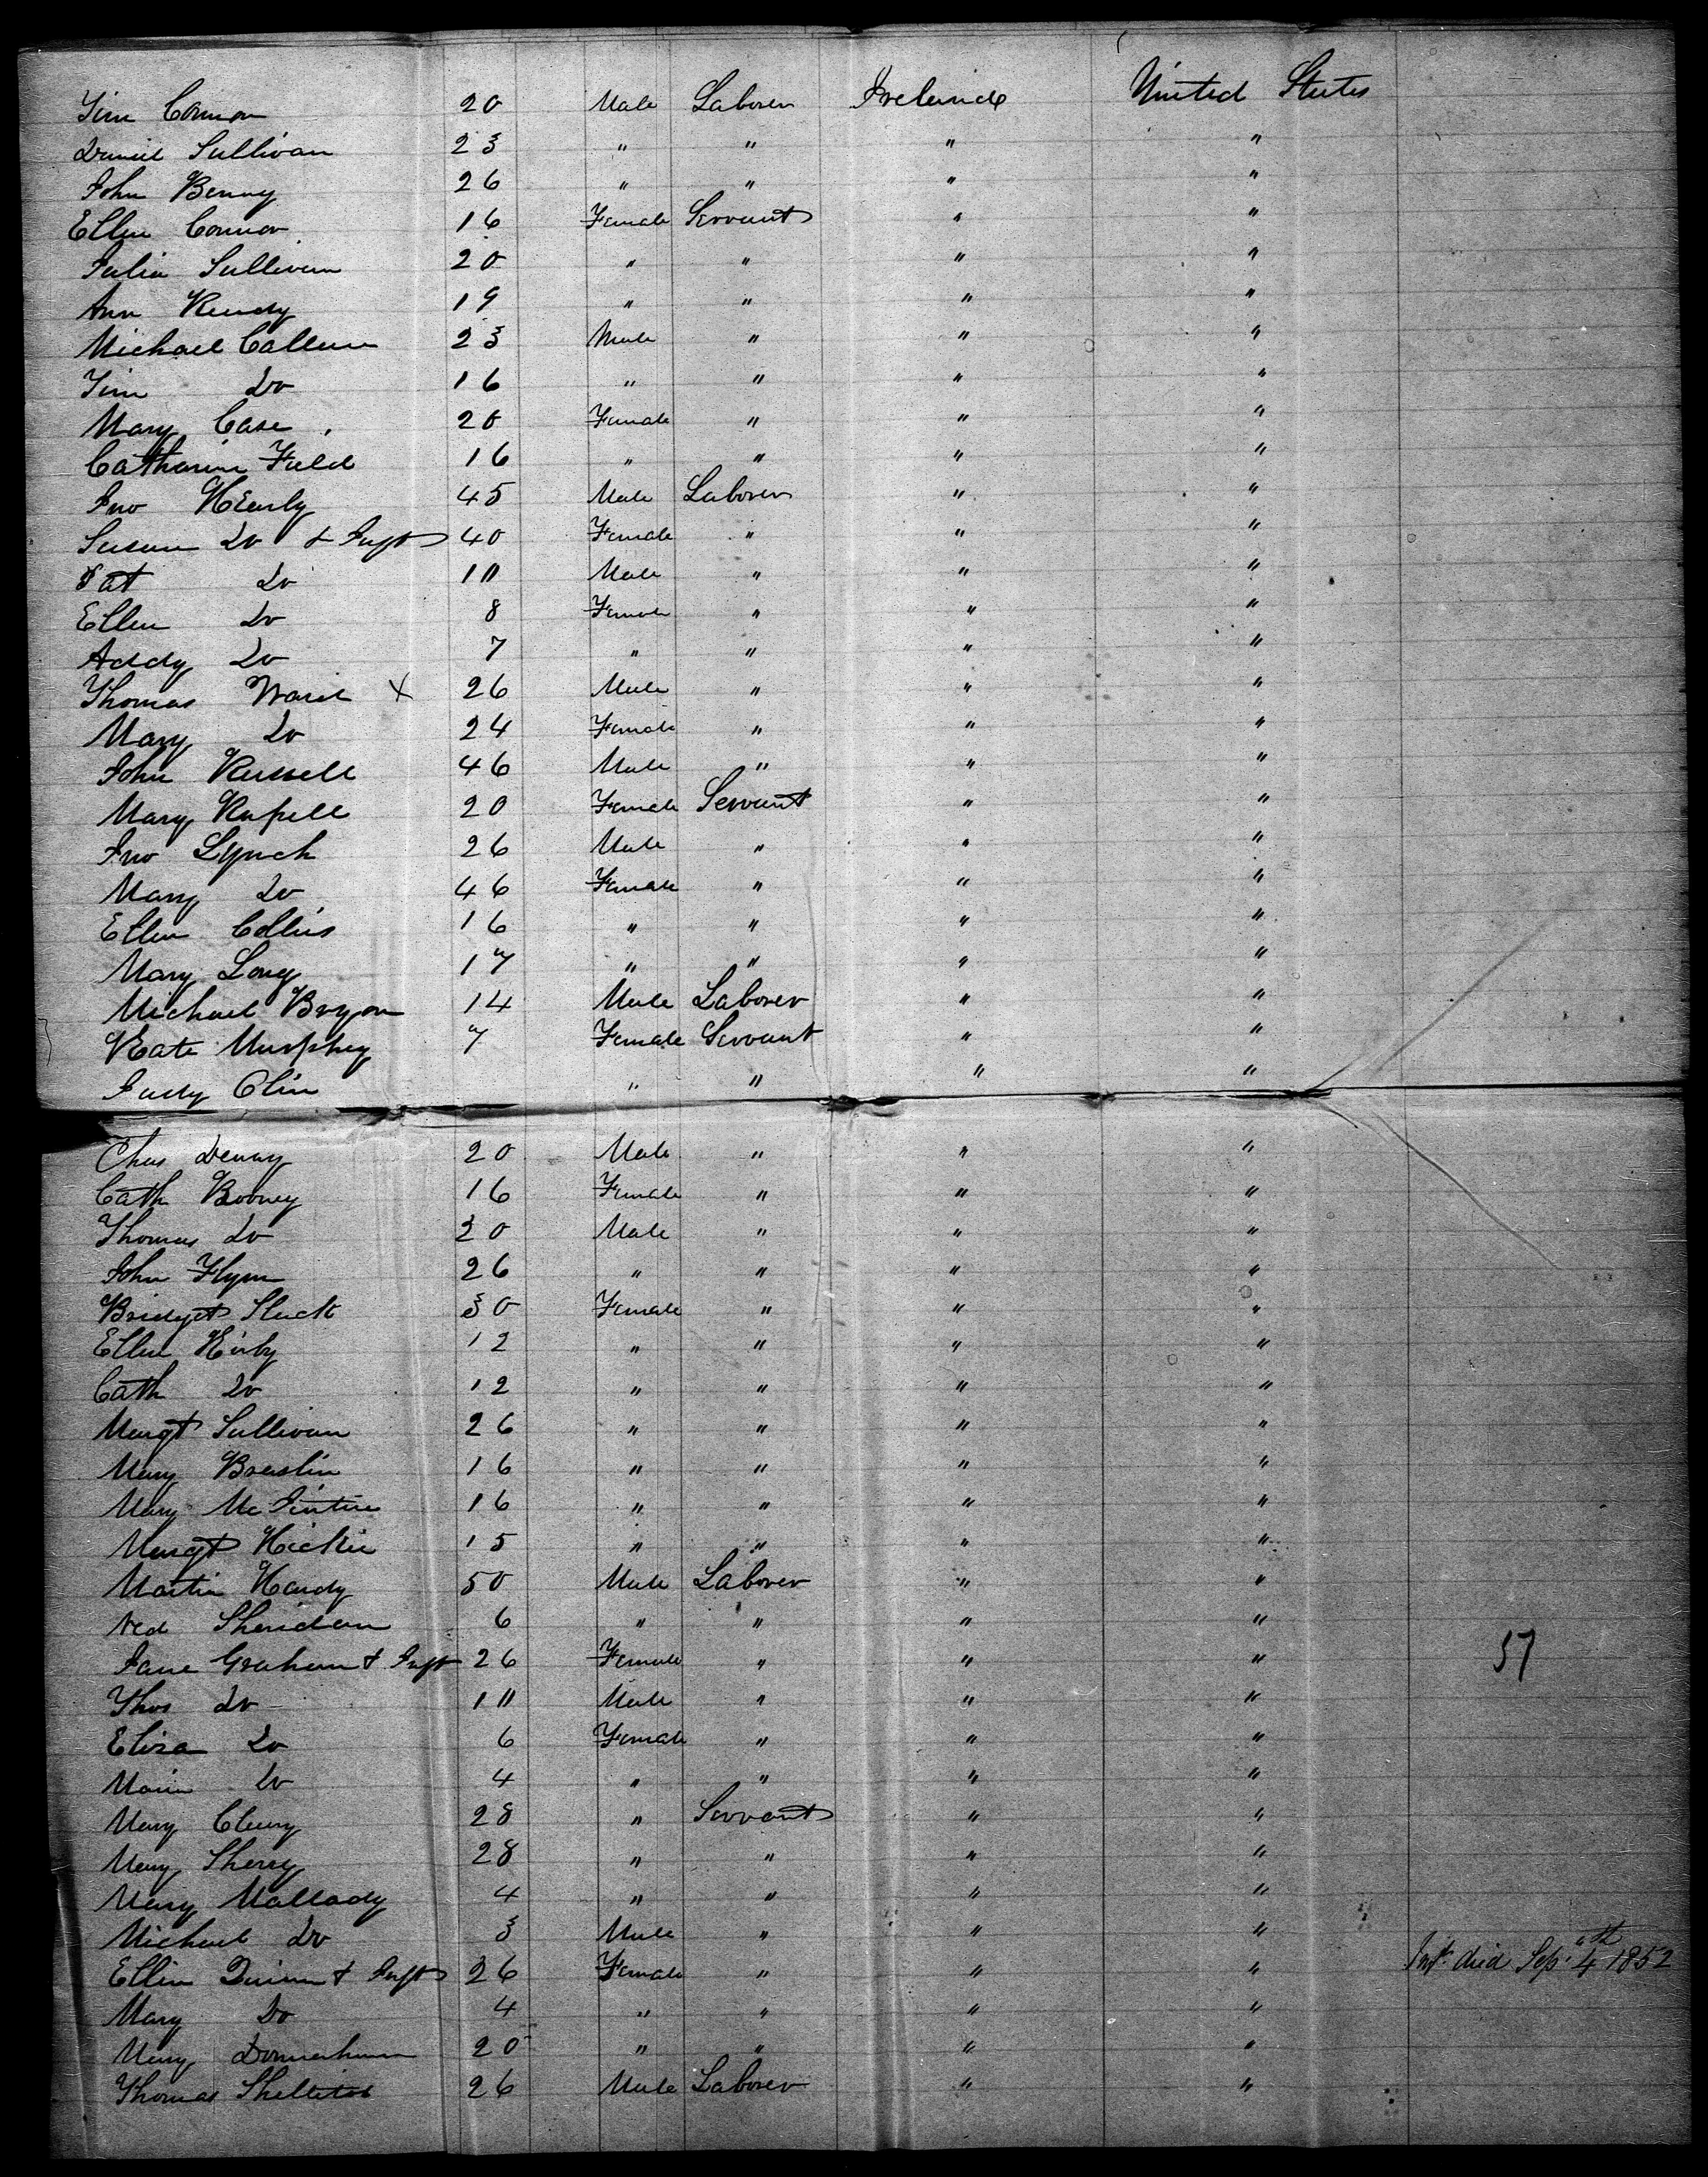 Tim Connor 20 Male Laborer Ireland United States
Daniel Sullivan 23 " " " "
John Benny 26 " " " "
Ellen Connor 16 Female Servant " "
Julia Sullivan 20 " " " "
Ann Kendy 19 " " " "
Michael Callen 23 Male " " "
Tim Do 16 " " " "
Mary Case 20 Female " " "
Catharine Field 16 " " " "
Jno 45 Male Laborer " "
Susan Do & Inft 40 Female " " "
Pat Do 10 Male " " "
Ellen Do 8 Female " " "
Addy Do 7 " " " "
Thomas Ward X 26 Male " " "
Mary Do 24 Female " " "
John Russell 46 Male " " "
Mary Russell 20 Female Servant " "
Jno Lynch 26 Male " " "
Mary Do 46 Female " " "
Ellen Collins 16 " " " "
Mary Long 17 " " " "
Michael Bryon 14 Male Laborer " "
Kate Murphey 7 Female Servant " "
Judy Olin " " " "
Chas Denny 20 Male " " "
Cath Booney 16 Female " " "
Thomas Do 20 Male " " "
John Flynn 26 " " " "
Bridget Slack 30 Female " " "
Ellen Kirby 12 " " " "
Cath Do 12 " " " "
Margt Sullivan 26 " " " "
Mary Breslin 16 " " " "
Mary McIntire 16 " " " "
Margt Hickie 15 " " " "
Martin Handy 50 Male Laborer " "
Ned Sheridan 6 " " " "
Jane Graham & Inft 26 Female " " " 57
Thos Do 10 Male " " "
Eliza Do 6 Female " " "
Maria Do 4 " " " "
Mary Cleary 28 " Servant " "
Mary Sherry 28 " " " "
Mary Mallady 4 " " " "
Michael Do 3 Male " " "
Ellen Quinn & Inft 26 Female " " " Inft died Sep. 4th 1852
Mary Do 4 " " " "
Mary Donnerhunn 20 " " " "
Thomas 26 Male Laborer " "